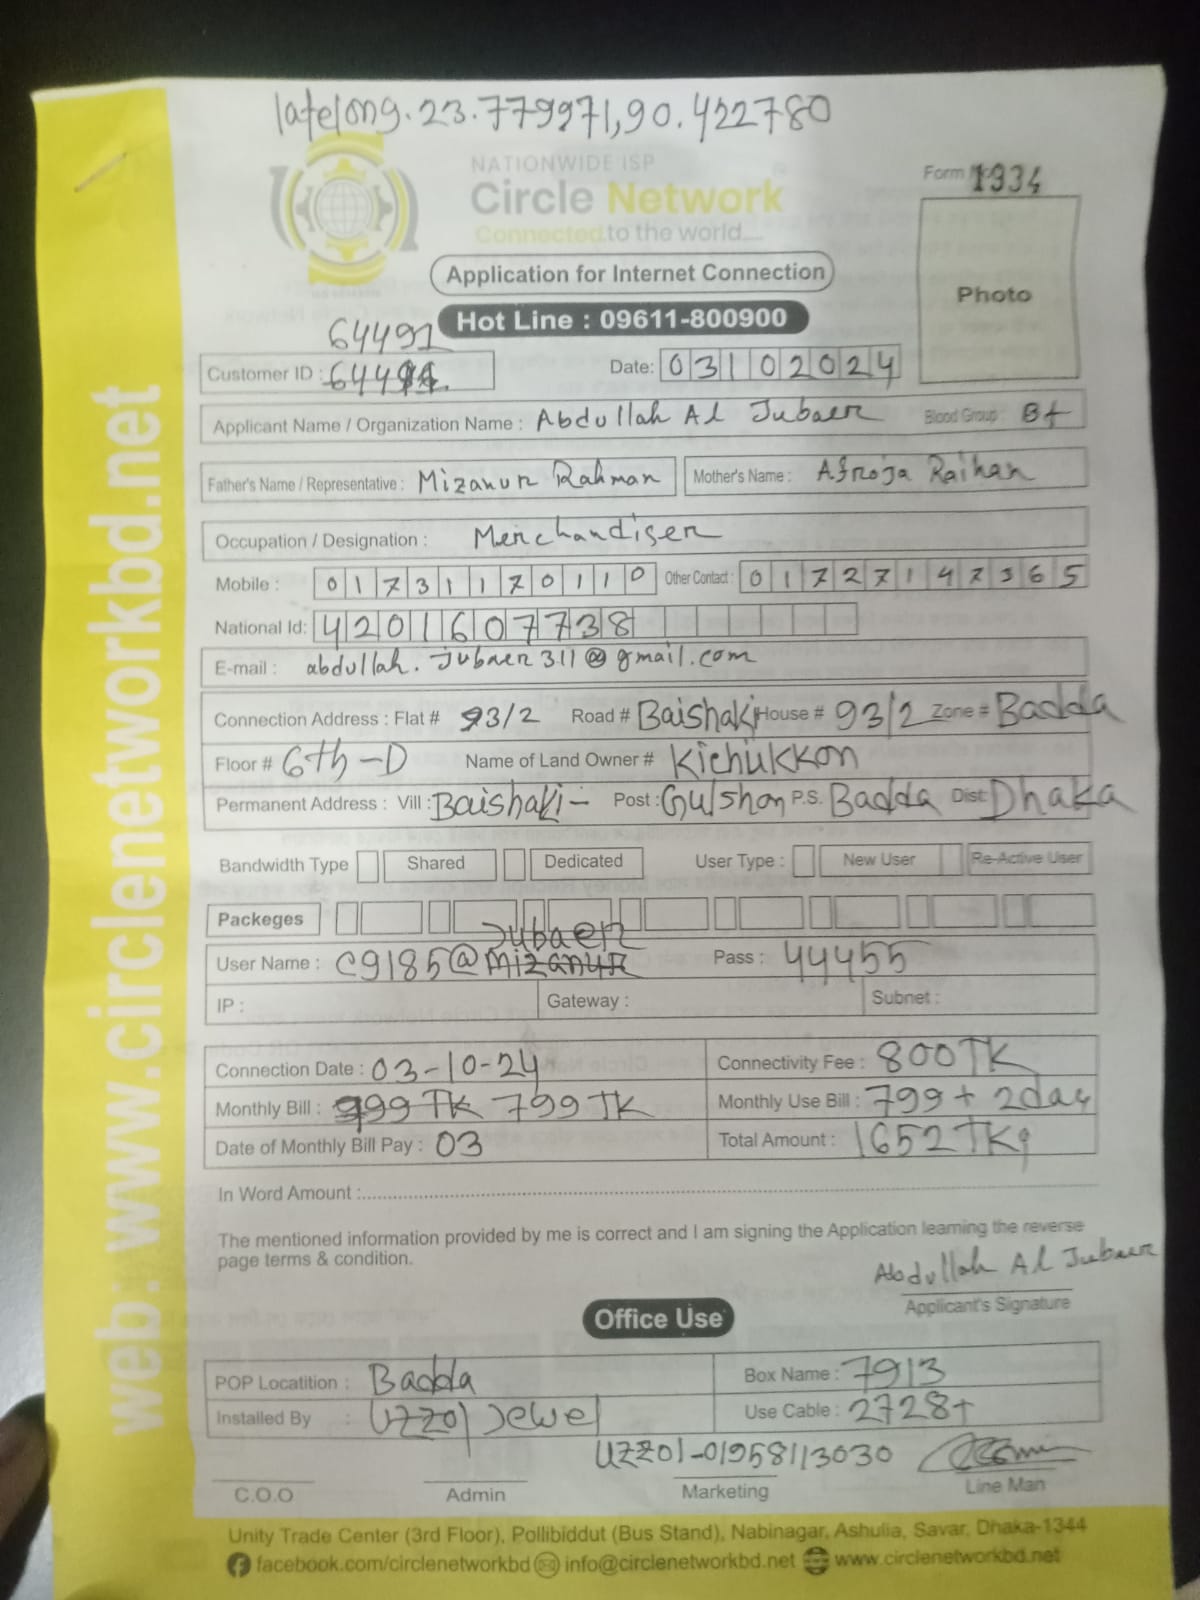 late/ong.23.779971,90.422780
NATIONWIDE ISP
Circle Network
Connected to the world....
Form 1934
Photo
Application for Internet Connection
Hot Line : 09611-800900
64491
Customer ID : 6449
Date: 03102024
Applicant Name / Organization Name : Abdullah Al Jubaer Blood Group : B+
Father's Name / Representative : Mizanur Rahman Mother's Name : Afroja Raihan
Occupation / Designation : Merchandiser
Mobile : 01731170110 Other Contact : 01727147365
National Id: 4201607738
E-mail : abdullah.jubaer311@gmail.com
Connection Address : Flat # 93/2 Road # Baishaki House # 93/2 Zone # Badda
Floor # 6th-D Name of Land Owner # Kichukkon
Permanent Address : Vill : Baishaki- Post : Gulshan P.S. Badda Dist: Dhaka
Bandwidth Type Shared Dedicated User Type : New User Re-Active User
Packeges
Jubaer
User Name : C9185@Mizanur Pass : 44455
IP : Gateway : Subnet :
Connection Date : 03-10-24 Connectivity Fee : 800TK
Monthly Bill : 999 TK 799 TK Monthly Use Bill : 799 + 2day
Date of Monthly Bill Pay : 03 Total Amount : 1652TK
In Word Amount :
The mentioned information provided by me is correct and I am signing the Application learning the reverse
page terms & condition.
Abdullah Al Jubaer
Applicant's Signature
Office Use
POP Locatition : Badda Box Name : 7913
Installed By : Uzzol Jewel Use Cable : 2728+
Uzzol-01958113030
C.O.O Admin Marketing Line Man
Unity Trade Center (3rd Floor), Pollibiddut (Bus Stand), Nabinagar, Ashulia, Savar, Dhaka-1344
facebook.com/circlenetworkbd info@circlenetworkbd.net www.circlenetworkbd.net
web: www.circlenetworkbd.net